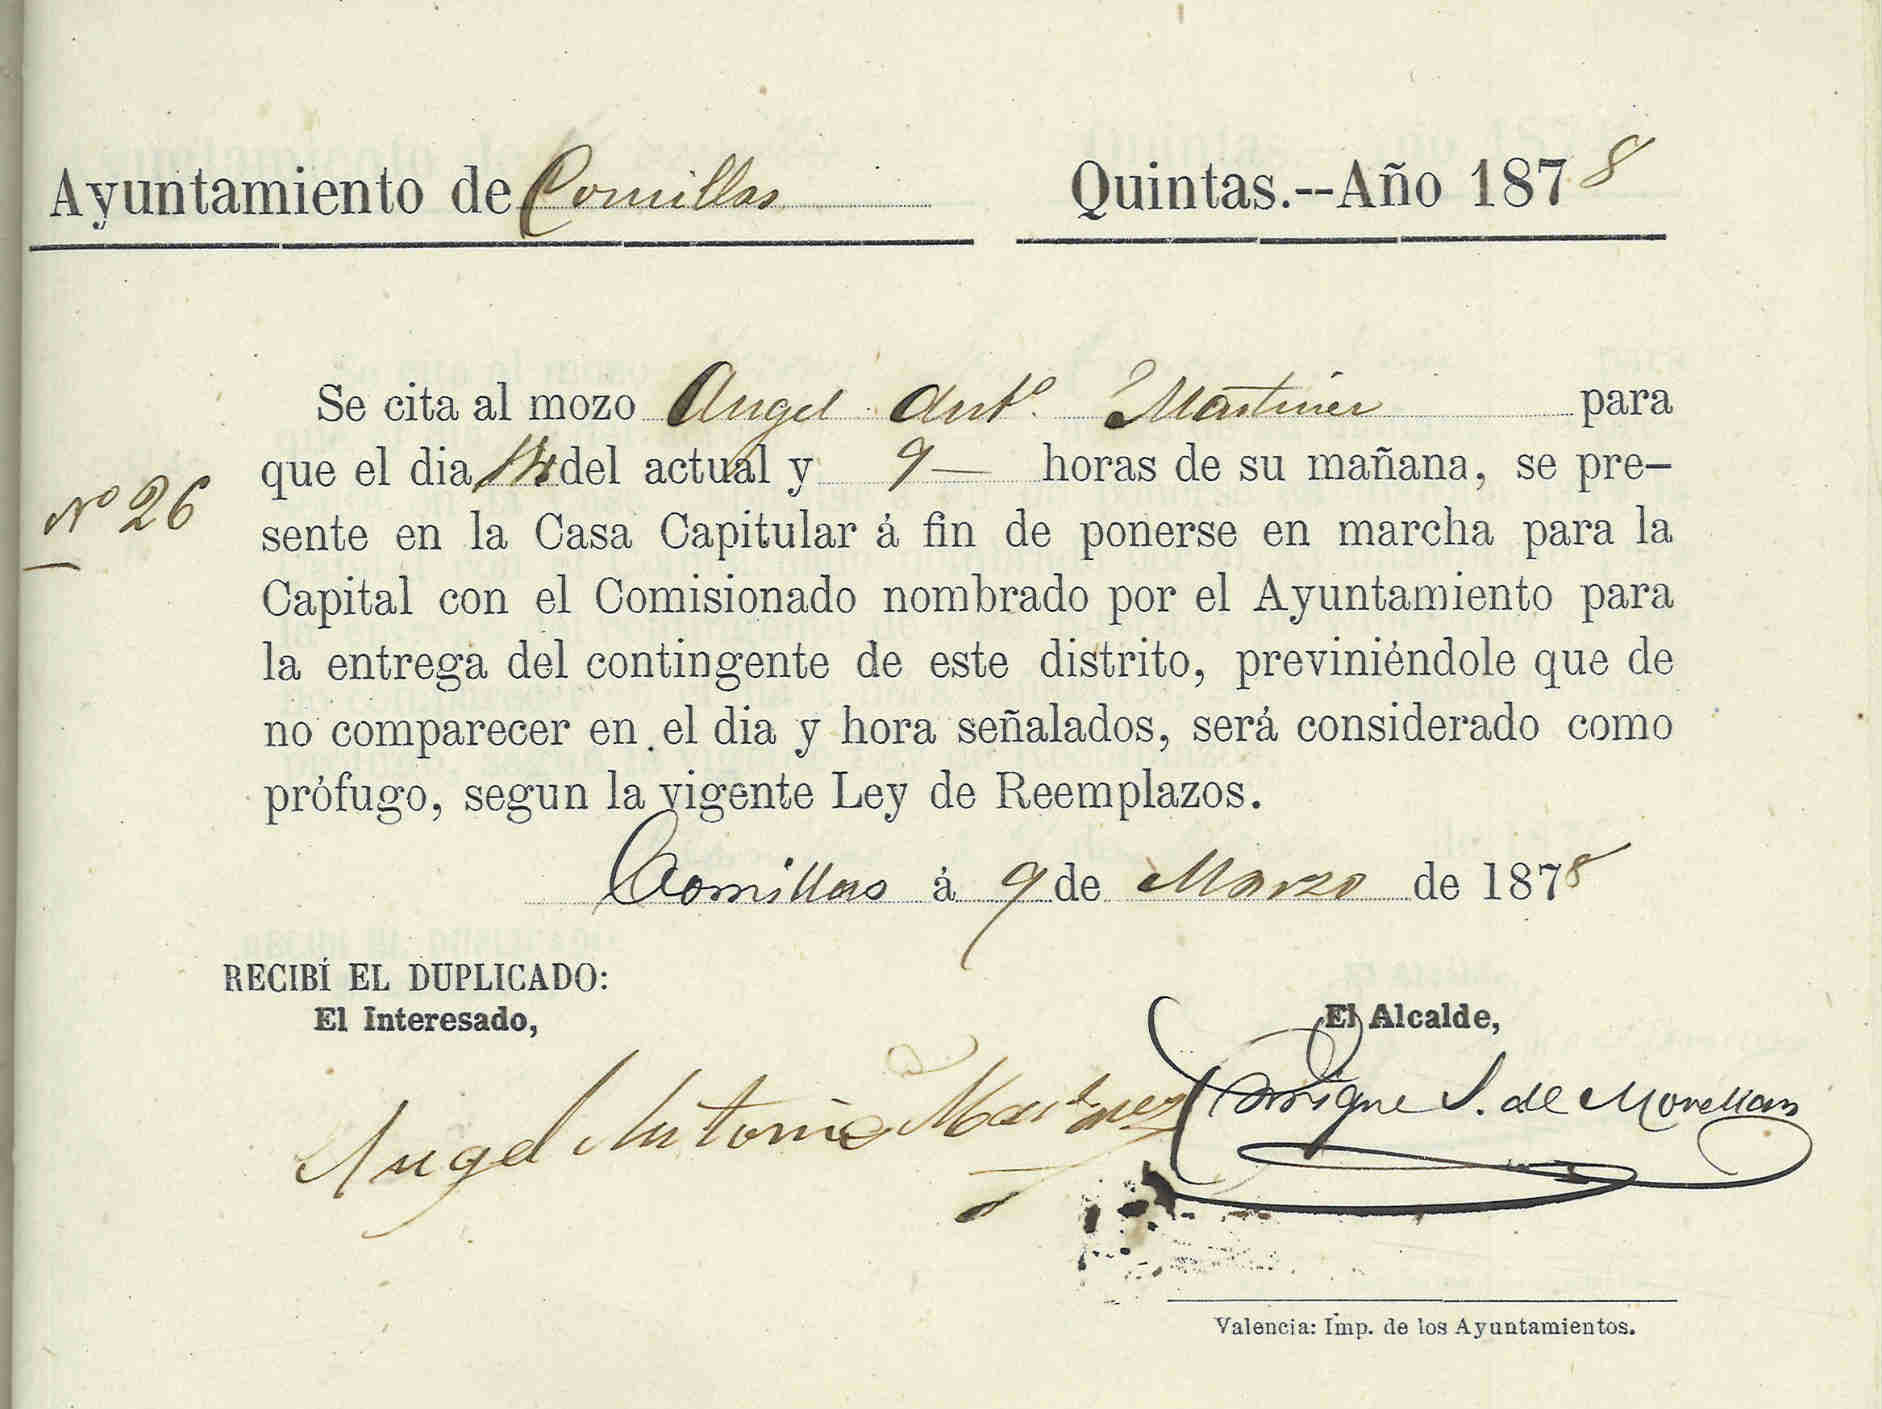 Ayuntamiento de Comillas Quintas.--Año 1878
Se cita al mozo Angel Antº. Martinez para
que el dia 14 del actual y 9 — horas de su mañana, se pre-
Nº 26
sente en la Casa Capitular á fin de ponerse en marcha para la
Capital con el Comisionado nombrado por el Ayuntamiento para
la entrega del contingente de este distrito, previniéndole que de
no comparecer en el dia y hora señalados, será considerado como
prófugo, segun la vigente Ley de Reemplazos.
Comillas á 9 de Marzo de 1878
RECIBÍ EL DUPLICADO:
El Interesado,
El Alcalde,
Angel Antonio Martinez
Enrique S. de Movellan
Valencia: Imp. de los Ayuntamientos.